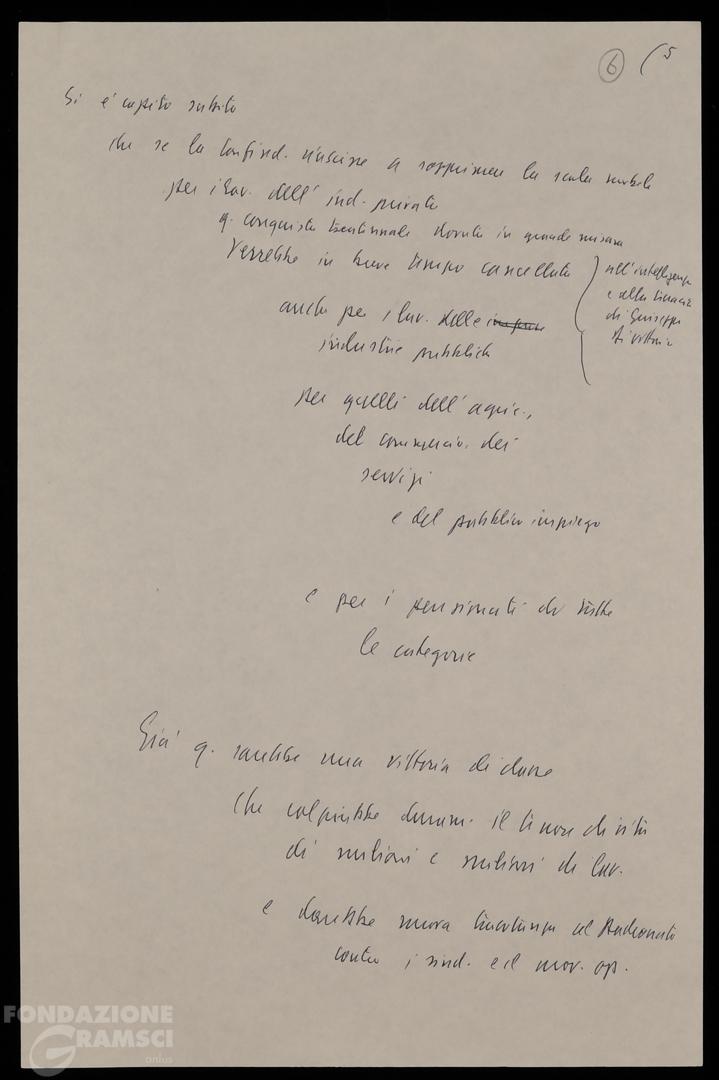 6 (5
Si è capito subito
che se la Confind. riuscisse a sopprimere la scala mobile
per i lav. dell'ind. privata
q. conquista trentennale dovuta in grande misura
all'intelligenza
e alla tenacia
di Giuseppe
Di Vittorio
verrebbe in breve tempo cancellata
anche per i lav. delle
industrie pubbliche
per quelli dell'agric.,
del commercio, dei
servizi
e del pubblico impiego
e per i pensionati di tutte
le categorie
Già q. sarebbe una vittoria di classe
che colpirebbe duram. il tenore di vita
di milioni e milioni di lav.
e darebbe nuova tracotanza al Padronato
contro i sind. e il mov. op.
FONDAZIONE
GRAMSCI
onlus